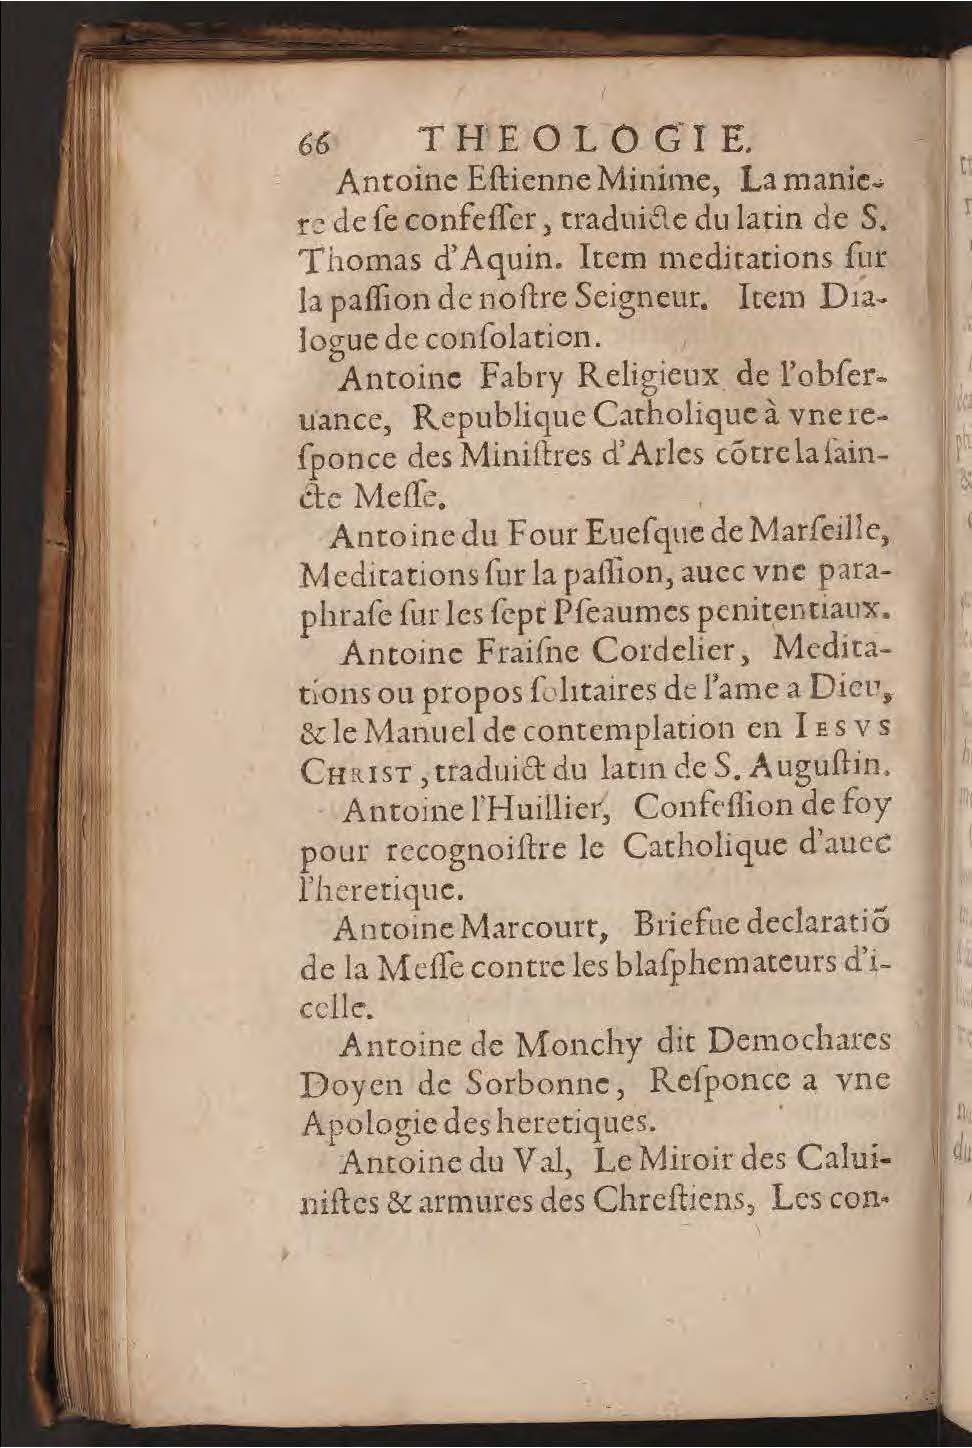 66 THEOLOGIE.
Antoine Eſtienne Minime, La manie-
re de ſe confeſſer, traduicte du latin de S.
Thomas d'Aquin. Item meditations ſur
la paſſion de noſtre Seigneur. Item Dia-
logue de conſolation.
Antoine Fabry Religieux de l'obſer-
uance, Republique Catholique à vne re-
ſponce des Miniſtres d'Arles cōtre la ſain-
cte Meſſe.
Antoine du Four Eueſque de Marſeille,
Meditations ſur la paſſion, auec vne para-
phraſe ſur les ſept Pſeaumes penitentiaux.
Antoine Fraiſne Cordelier, Medita-
tions ou propos ſolitaires de l'ame a Dieu,
& le Manuel de contemplation en IESVS
CHRIST, traduict du latin de S. Auguſtin.
Antoine l'Huillier, Confeſſion de foy
pour recognoiſtre le Catholique d'auec
l'heretique.
Antoine Marcourt, Briefue declaratiō
de la Meſſe contre les blaſphemateurs d'i-
celle.
Antoine de Monchy dit Demochares
Doyen de Sorbonne, Reſponce a vne
Apologie des heretiques.
Antoine du Val, Le Miroir des Calui-
niſtes & armures des Chreſtiens, Les con-